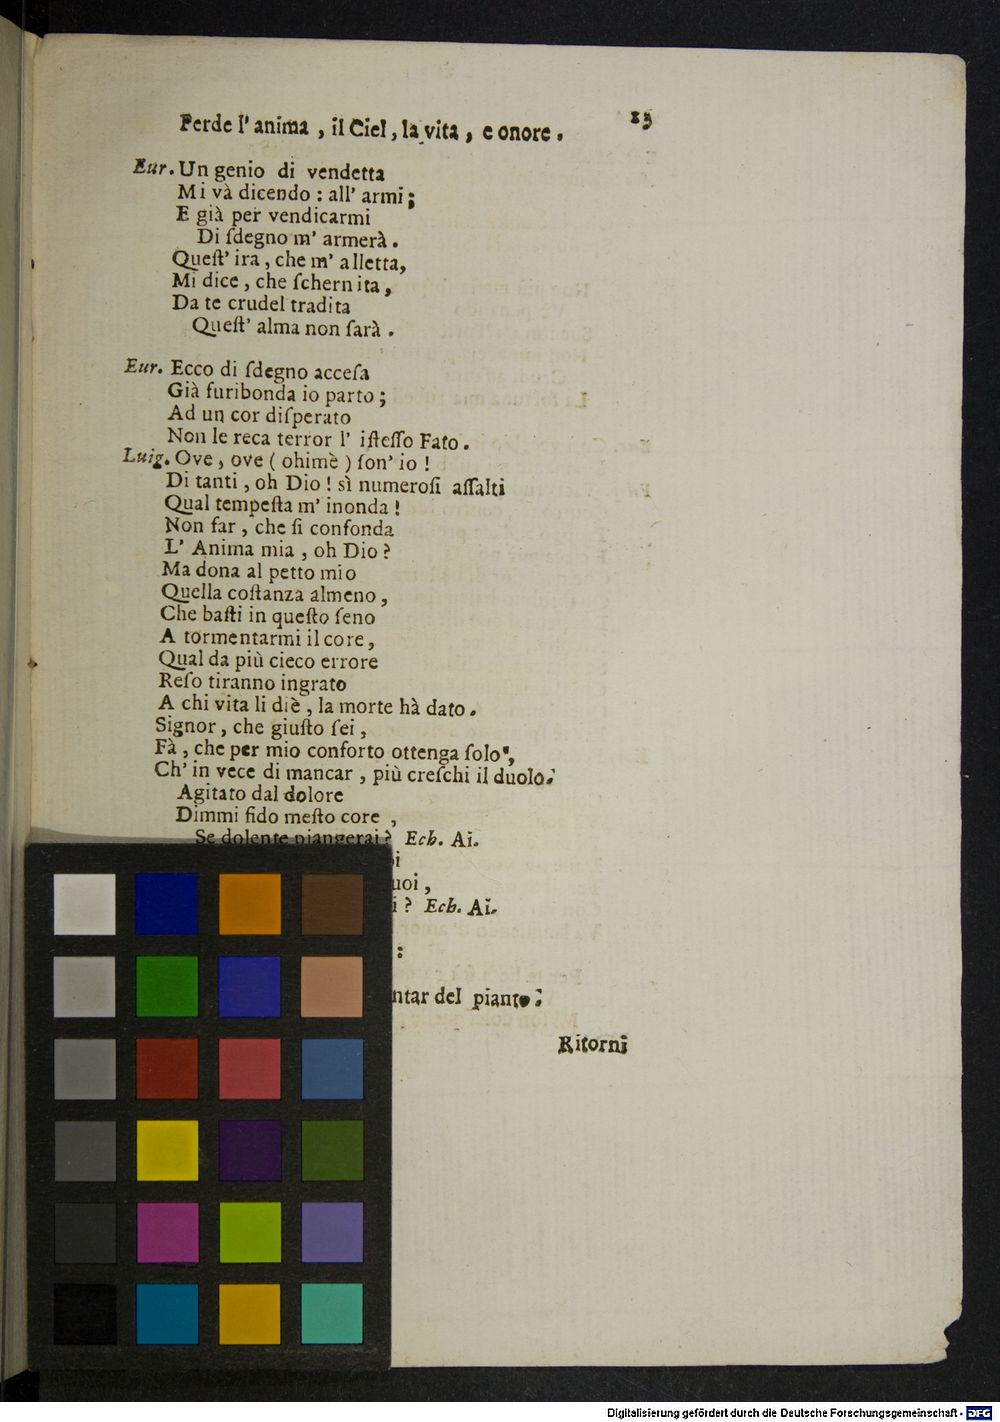 Perde l' anima , il Ciel , la vita , e onore . 25
Eur. Un genio di vendetta
Mi và dicendo : all' armi ;
E già per vendicarmi
Di ſdegno m' armerà .
Queſt' ira , che m' alletta,
Mi dice , che ſchernita ,
Da te crudel tradita
Queſt' alma non ſarà .
Eur. Ecco di ſdegno acceſa
Già furibonda io parto ;
Ad un cor diſperato
Non le reca terror l' iſteſſo Fato .
Luig. Ove , ove ( ohimè ) ſon' io !
Di tanti , oh Dio ! sì numeroſi aſſalti
Qual tempeſta m' inonda !
Non far , che ſi confonda
L' Anima mia , oh Dio ?
Ma dona al petto mio
Quella coſtanza almeno ,
Che baſti in queſto ſeno
A tormentarmi il core ,
Qual da più cieco errore
Reſo tiranno ingrato
A chi vita li diè , la morte hà dato .
Signor , che giuſto ſei ,
Fà , che per mio conforto ottenga ſolo ,
Ch' in vece di mancar , più creſchi il duolo .
Agitato dal dolore
Dimmi fido meſto core ,
Se dolente piangerai ? Ech. Ai.
i
uoi ,
i ? Ech. Ai.
:
ntar del pianto .
Ritorni
Digitalisierung gefördert durch die Deutsche Forschungsgemeinschaft - DFG